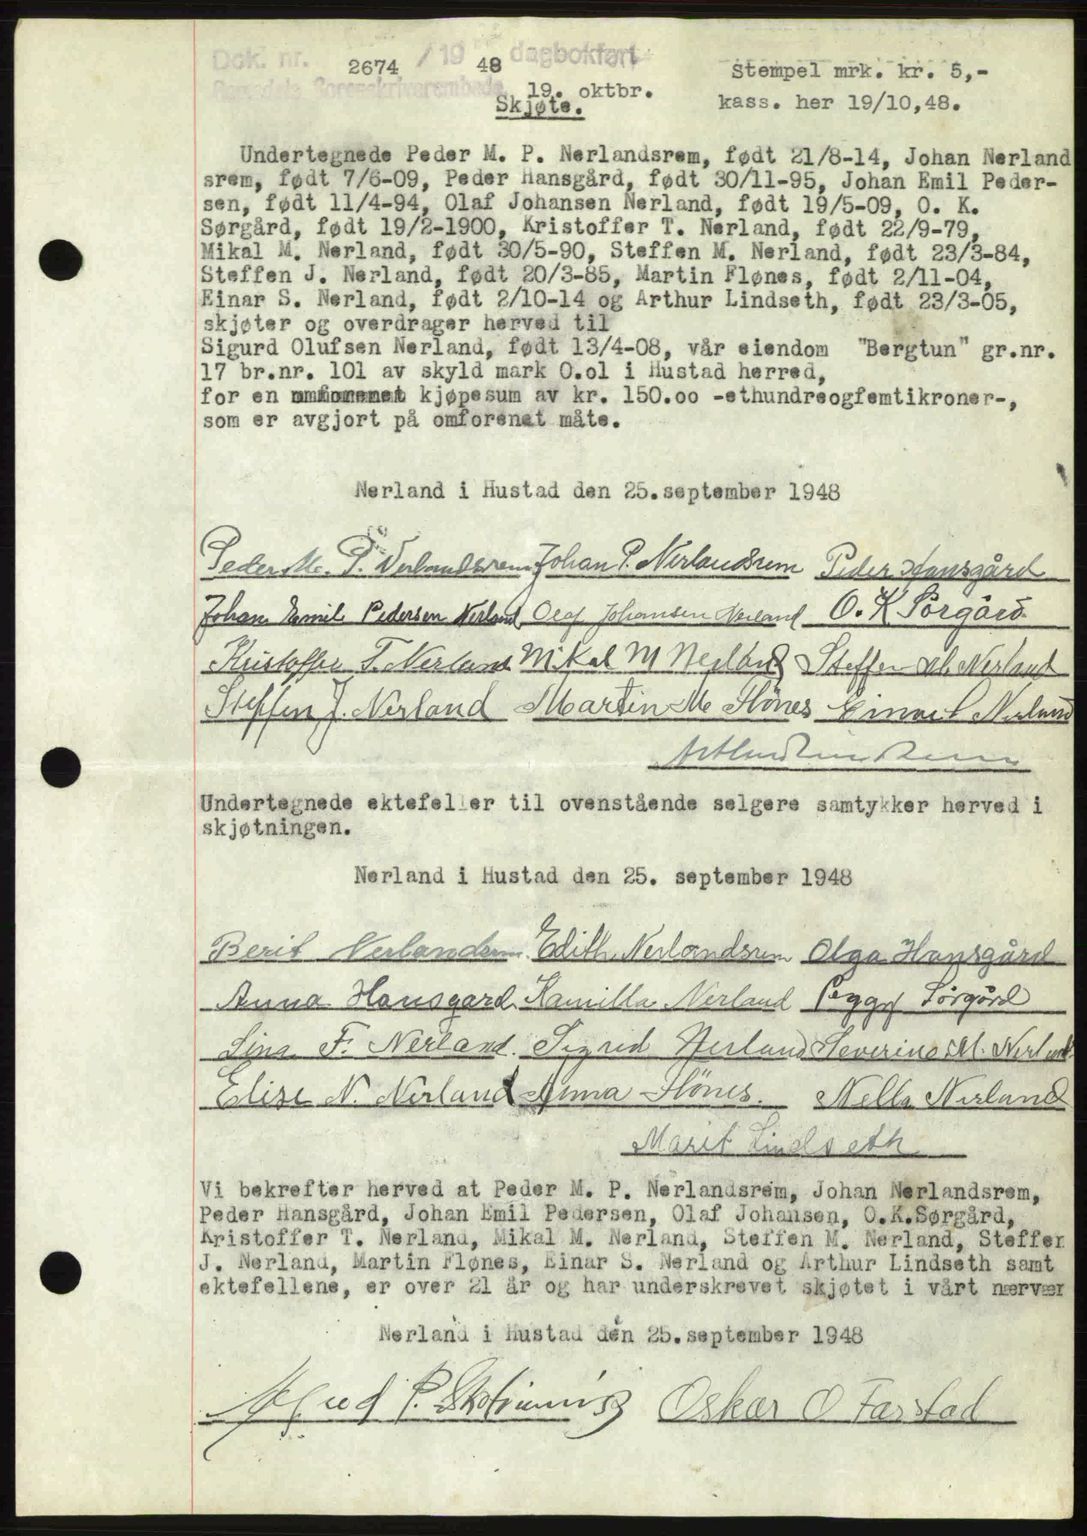 Dok. nr. 2674 /19 48 dagbokført
19. oktbr.
Stempel mrk. kr. 5,-
kass. her 19/10,48.
Skjøte.
Undertegnede Peder M. P. Nerlandsrem, født 21/8-14, Johan Nerland
srem, født 7/6-09, Peder Hansgård, født 30/11-95, Johan Emil Peder-
sen, født 11/4-94, Olaf Johansen Nerland, født 19/5-09, O. K.
Sørgård, født 19/2-1900, Kristoffer T. Nerland, født 22/9-79,
Mikal M. Nerland, født 30/5-90, Steffen M. Nerland, født 23/3-84,
Steffen J. Nerland, født 20/3-85, Martin Flønes, født 2/11-04,
Einar S. Nerland, født 2/10-14 og Arthur Lindseth, født 23/3-05,
skjøter og overdrager herved til
Sigurd Olufsen Nerland, født 13/4-08, vår eiendom "Bergtun" gr.nr.
17 br.nr. 101 av skyld mark 0.ol i Hustad herred,
for en kjøpesum av kr. 150.oo -ethundreogfemtikroner-,
som er avgjort på omforenet måte.
Nerland i Hustad den 25.september 1948
Peder M. P. Nerlandsrem Johan P. Nerlandsrem Peder Hansgård
Johan Emil Pedersen Nerland Olaf Johansen Nerland O. K Sørgård
Kristoffer T. Nerland Mikal M Nerland Steffen M. Nerland
Steffen J. Nerland Martin M Flönes Einar S. Nerland
Undertegnede ektefeller til ovenstående selgere samtykker herved i
skjøtningen.
Nerland i Hustad den 25. september 1948
Berit Nerlandsrem Edith Nerlandsrem Olga Hansgård
Anna Hansgard Kamilla Nerland Peggy Sørgård
Lina F. Nerland. Sigrid Nerland Severine M. Nerland
Elise N. Nerland Anna Flönes. Nella Nerland
Marit Lindseth
Vi bekrefter herved at Peder M. P. Nerlandsrem, Johan Nerlandsrem,
Peder Hansgård, Johan Emil Pedersen, Olaf Johansen, O.K.Sørgård,
Kristoffer T. Nerland, Mikal M. Nerland, Steffen M. Nerland, Steffen
J. Nerland, Martin Flønes, Einar S. Nerland og Arthur Lindseth samt
ektefellene, er over 21 år og har underskrevet skjøtet i vårt nærvær
Nerland i Hustad den 25.september 1948
P. Oskar O Farstad